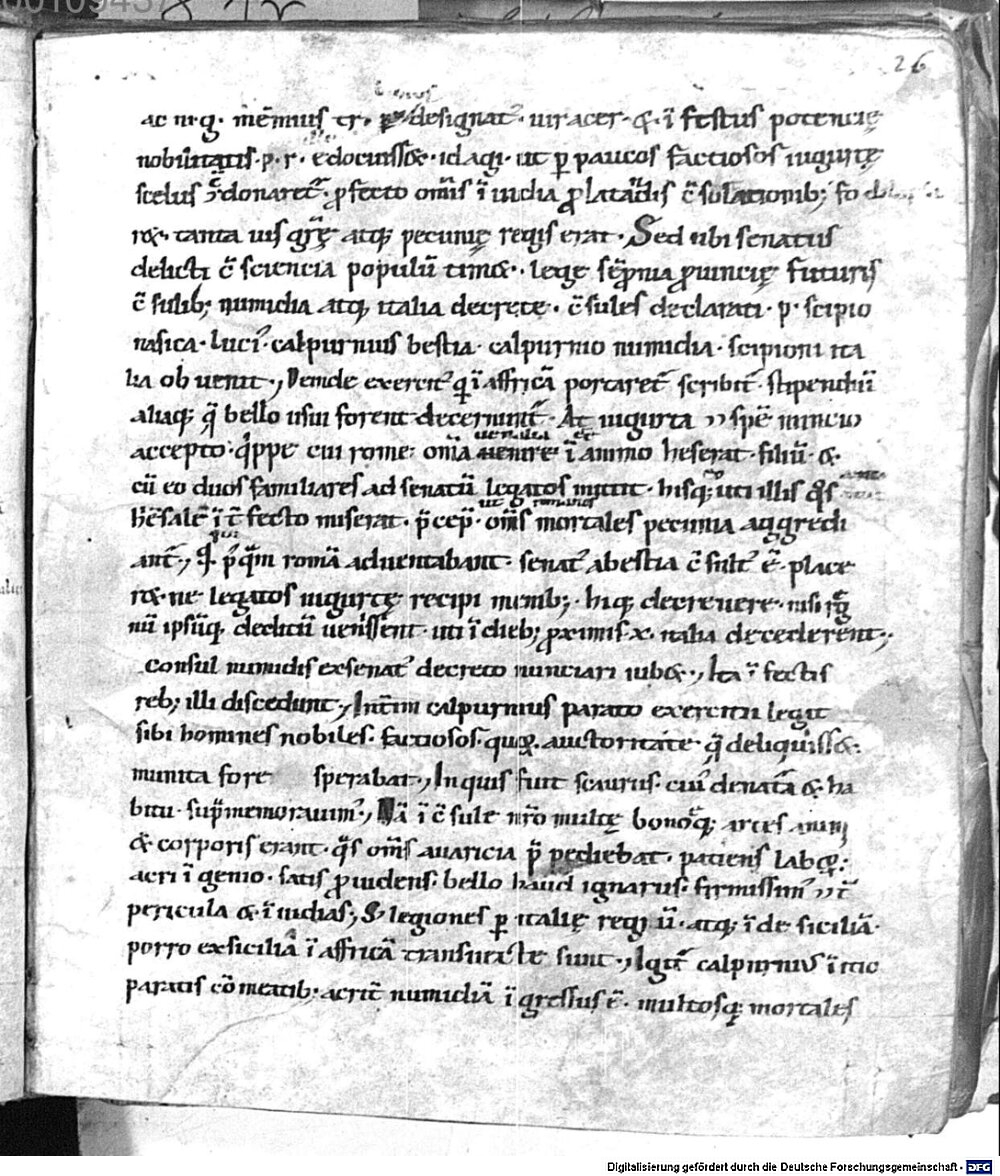 26
ac ni · g · mēmius tr · designat᷒ · uir acer · & · īfestus potencię
nobilitatis · p · r · edocuiss& · id agi · ut p̲ paucos factiosos iugurtę
scelus ꝯ̄donaret᷒ · ꝓfecto om̄is īuidia ꝓlatādis c̄sultationib;
r& · tanta uis gr̄ę atq; pecunię regis erat · Sed ubi senatus
delicti c̄sciencia populū tim& · lege sēpnia ꝓuincię futuris
c̄sulib; numidia atq; italia decrete · c̄sules declarati · p · scipio
nasica · luci᷒ · calpurnius bestia · calpurnio numidia · scipioni ita
lia obuenit ·, Deinde exercit᷒ q ī affricā portaret᷒ scribit᷒ · stipendiū
aliaq; q̄ bello usui forent decernunt᷒ · At iugurta ɔ̄ spē nuncio
accepto · q̍ppe cui rome · om̄ia uenire ī animo heserat · filiū · &
cū eo duos familiares ad senatū legatos mittit · hisq; uti illis q̄s
hēsale ītfecto miserat · p̄cep̄ · om̄s mortales pecunia aggredi
ant᷒ ·, Q̍ p̍q̄m romā aduentabant · senat᷒ abestia c̄sult᷒ ē · place
r& · ne legatos iugurtę recipi menib; · hiq; decreuere · nisi rēg
nū ipsūq; deditū uenissent · uti ī dieb; ꝓximis · x · italia decederent ·,
consul numidis exsenat᷒ decreto nunciari iub& ·, Ita īfectis
reb; illi discedunt ·, Int̄im calpurnius parato exercitu legit
sibi homines nobiles · factiosos · quoꝝ · auctoritate q̄ deliquiss& ·
munita fore sperabat ·, In quis fuit scaurus · cui᷒ denatā & · ha
bitu · sup̄memorauim᷒ ·, Nā ī c̄sule nr̄o multę bonęq; artes animi
& corporis erant · q̄s om̄s auaricia p̄pediebat · patiens laboꝝ ·
acri īgenio · satis ꝓuidens · bello haud ignarus · firmissim᷒ ɔ̄t̄
pericula & · īuidias ·, S& legiones p̲ italię regiū · atq; īde siciliā ·
porro exsiciliā ī affricā transuectę sunt ·, Igit᷒ calpurnius īitio
paratis cōmeatib; · acrit̄ numidiā īgressus ē · multosq; mortales
Digitalisierung gefördert durch die Deutsche Forschungsgemeinschaft - DFG